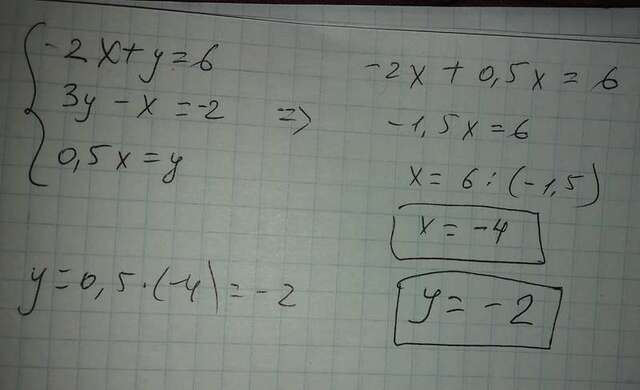 -2x+y=6
3y-x=-2 =>
0,5x=y
-2x+0,5x=6
-1,5x=6
x=6:(-1,5)
x=-4
y=0,5·(-4)=-2
y=-2